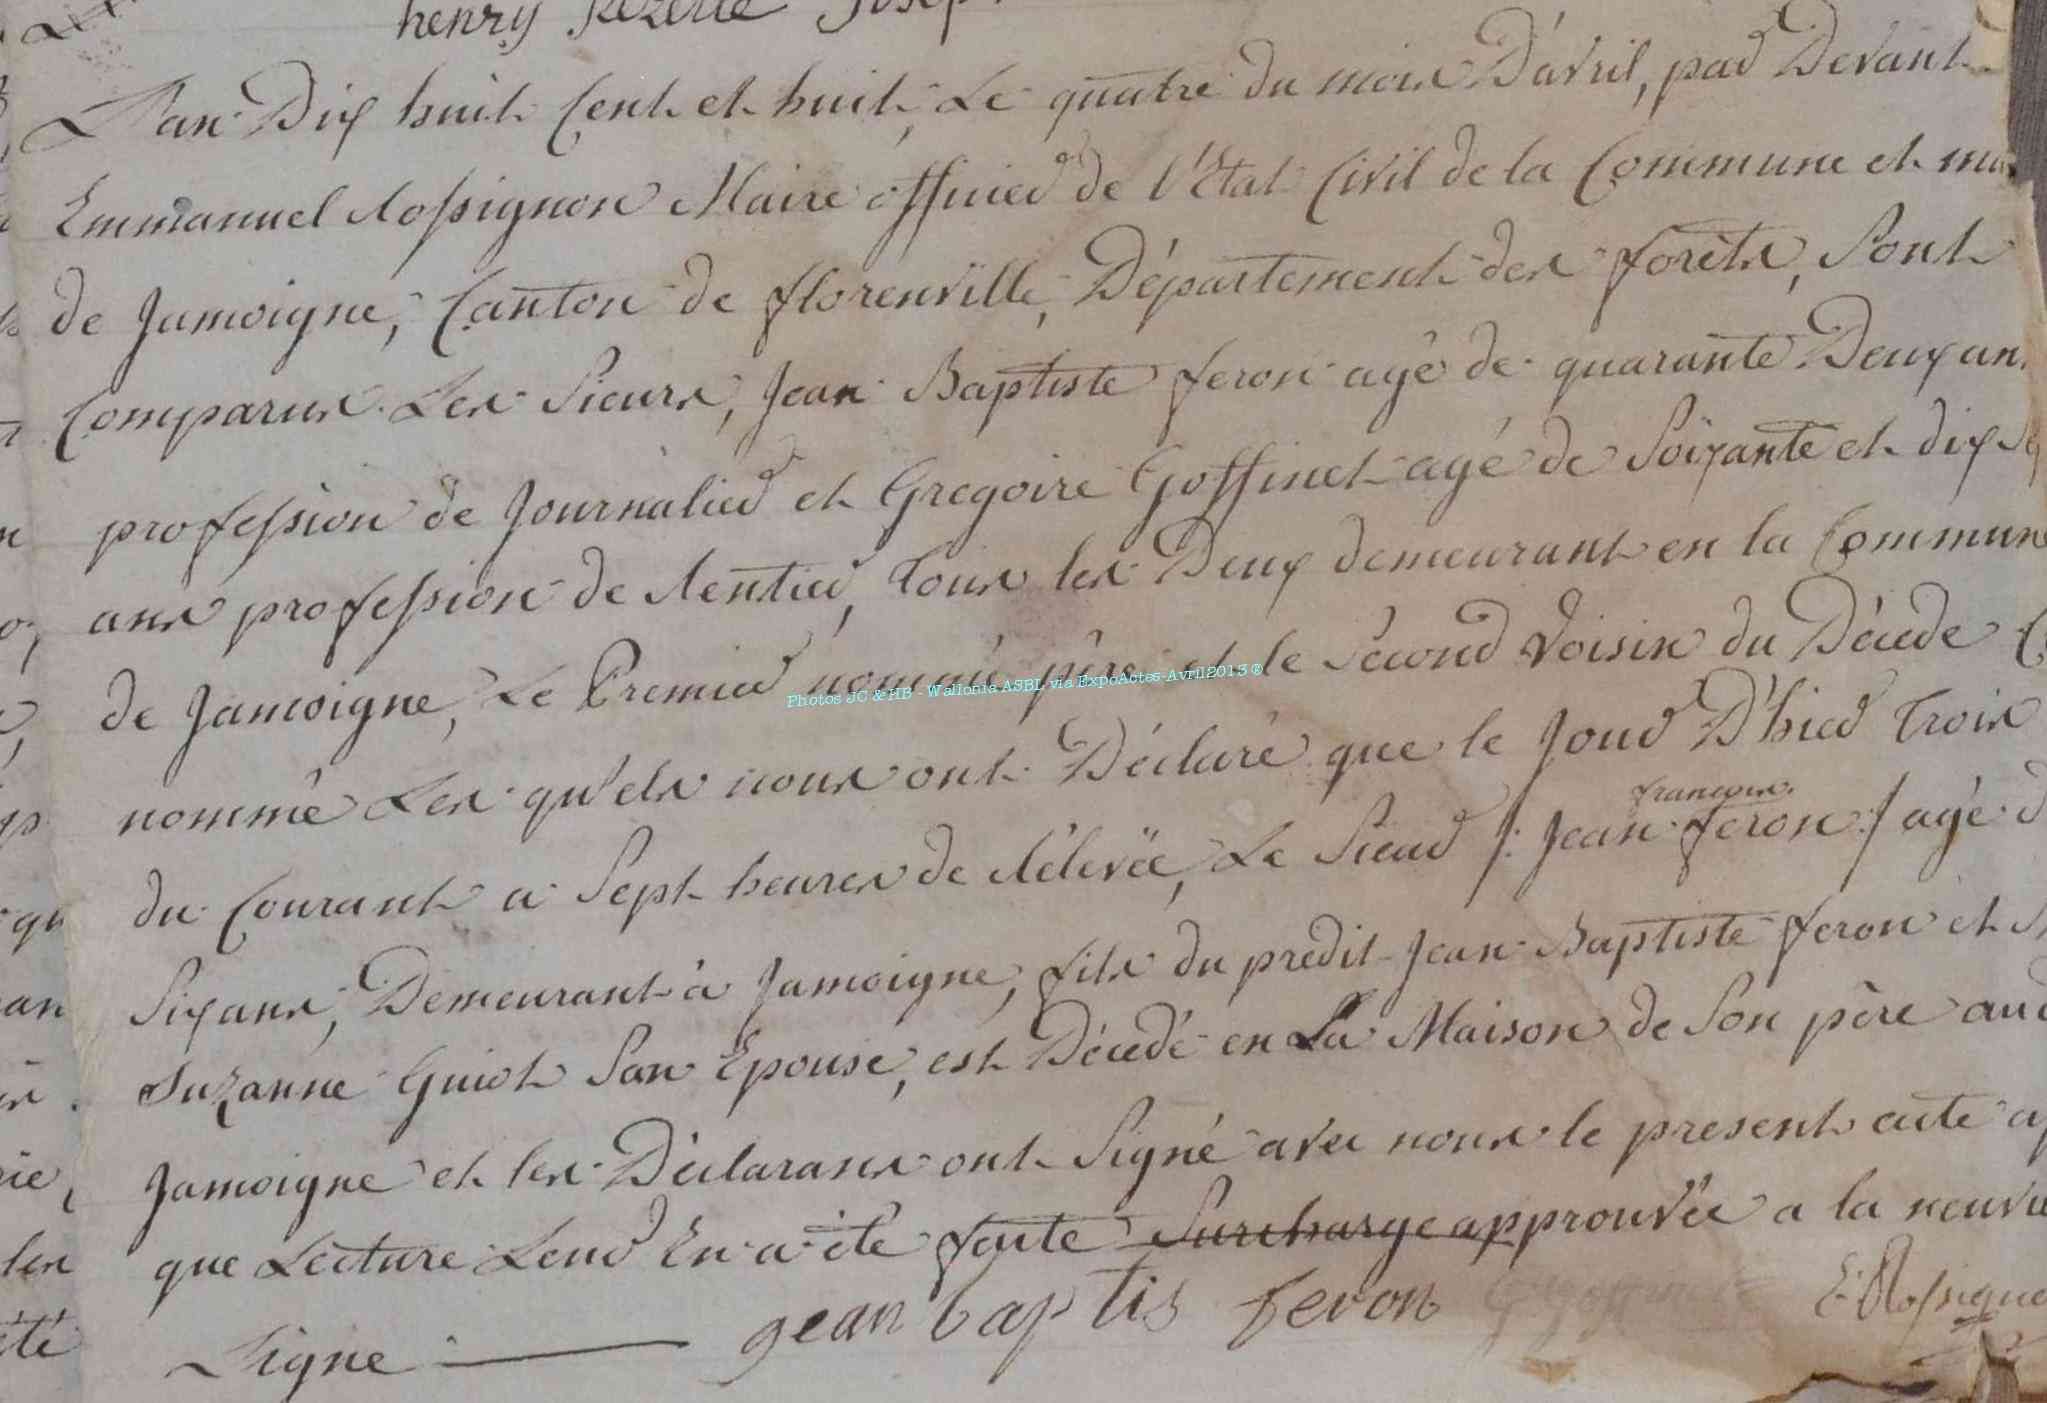 henry
L'an Dix huit Cent et huit, Le quatre du mois D'avril, par Devant
Emmanuel Rossignon Maire officier de l'Etat Civil de la Commune et
de Jamoigne, Canton de florenville, Département des forêts, Sont
Comparus Les Sieurs, Jean Baptiste feron agé de quarante Deux ans
profession de Journalier et Gregoire Goffinet agé de Soixante et dix
ans profession de Rentier, tous les Deux demeurant en la Commune
de Jamoigne, Le Premier nommé père et le second Voisin du Décédé
Photos JC & HB - Wallonia ASBL via ExpoActes-Avril2013®
nommé Les qu'els nous ont Déclaré que le Jour D'hier trois
françois.
du Courant a Sept heures de Rélevée, Le Sieur /: Jean feron :/ agé d
Six ans, Demeurant à Jamoigne, fils du predit Jean Baptiste feron et
Suzanne Guiot Son Epouse, est Décédé en La Maison de Son père aud
Jamoigne et les Déclarans ont Signé avec nous le present acte ap
que Lecture Leur En a été faite Surcharge approuvée a la neuvie
Ligne
jean baptis feron
E. Rossigno